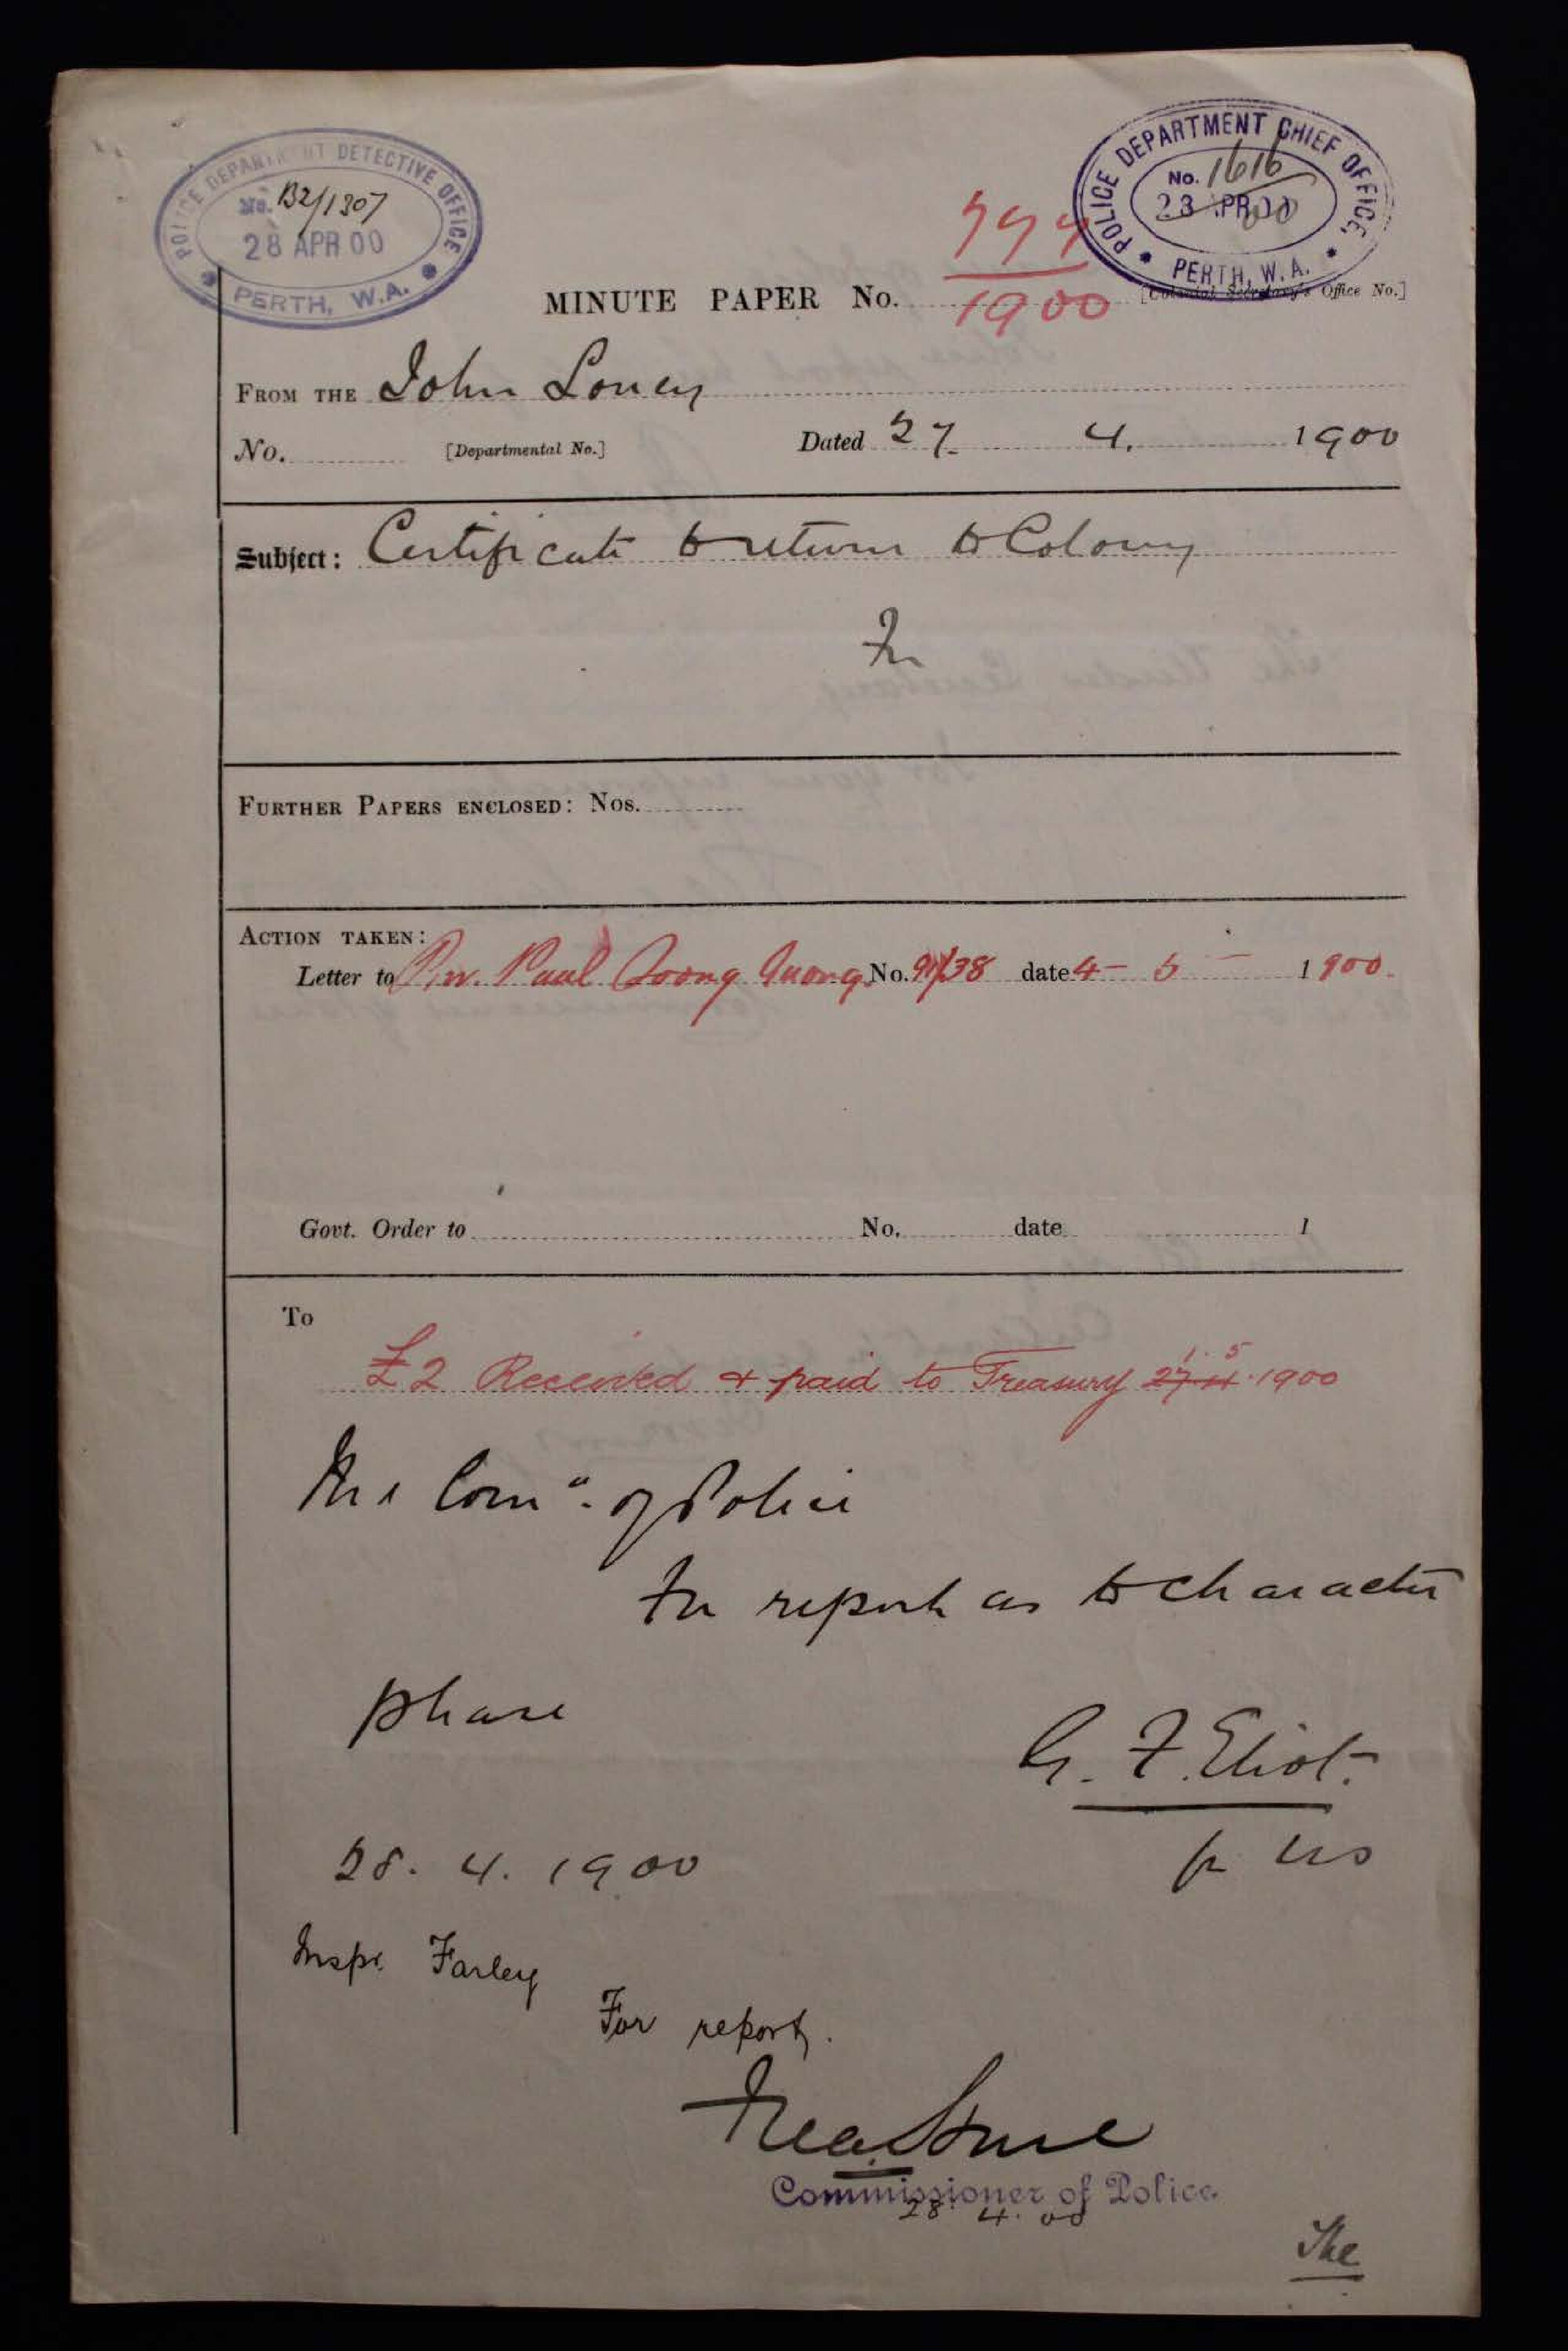 POLICE DEPARTMENT DETECTIVE OFFICE
No. B2/1307
28 APR 00
PERTH, W.A.
POLICE DEPARTMENT CHIEF OFFICE,
No. 1616
00
28 APR 00
PERTH, W.A.
1900
MINUTE PAPER No.
[Colonial Secretary's Office No.]
FROM THE John Loney
No. [Departmental No.] Dated 27. 4. 1900
Subject: Certificate to return to Colony
FURTHER PAPERS ENCLOSED: Nos.
ACTION TAKEN:
Letter to Paul Soong Quong No. 91/38 date 4 - 5 - 1900.
Govt. Order to No. date 1
To
1. 5
£2 Received & paid to Treasury 27.4.1900
The Comr. of Police
For report as to character
please
G. F. Eliot.
p US
28. 4. 1900
Inspr. Farley
For report.
Commissioner of Police.
28. 4. 00
The